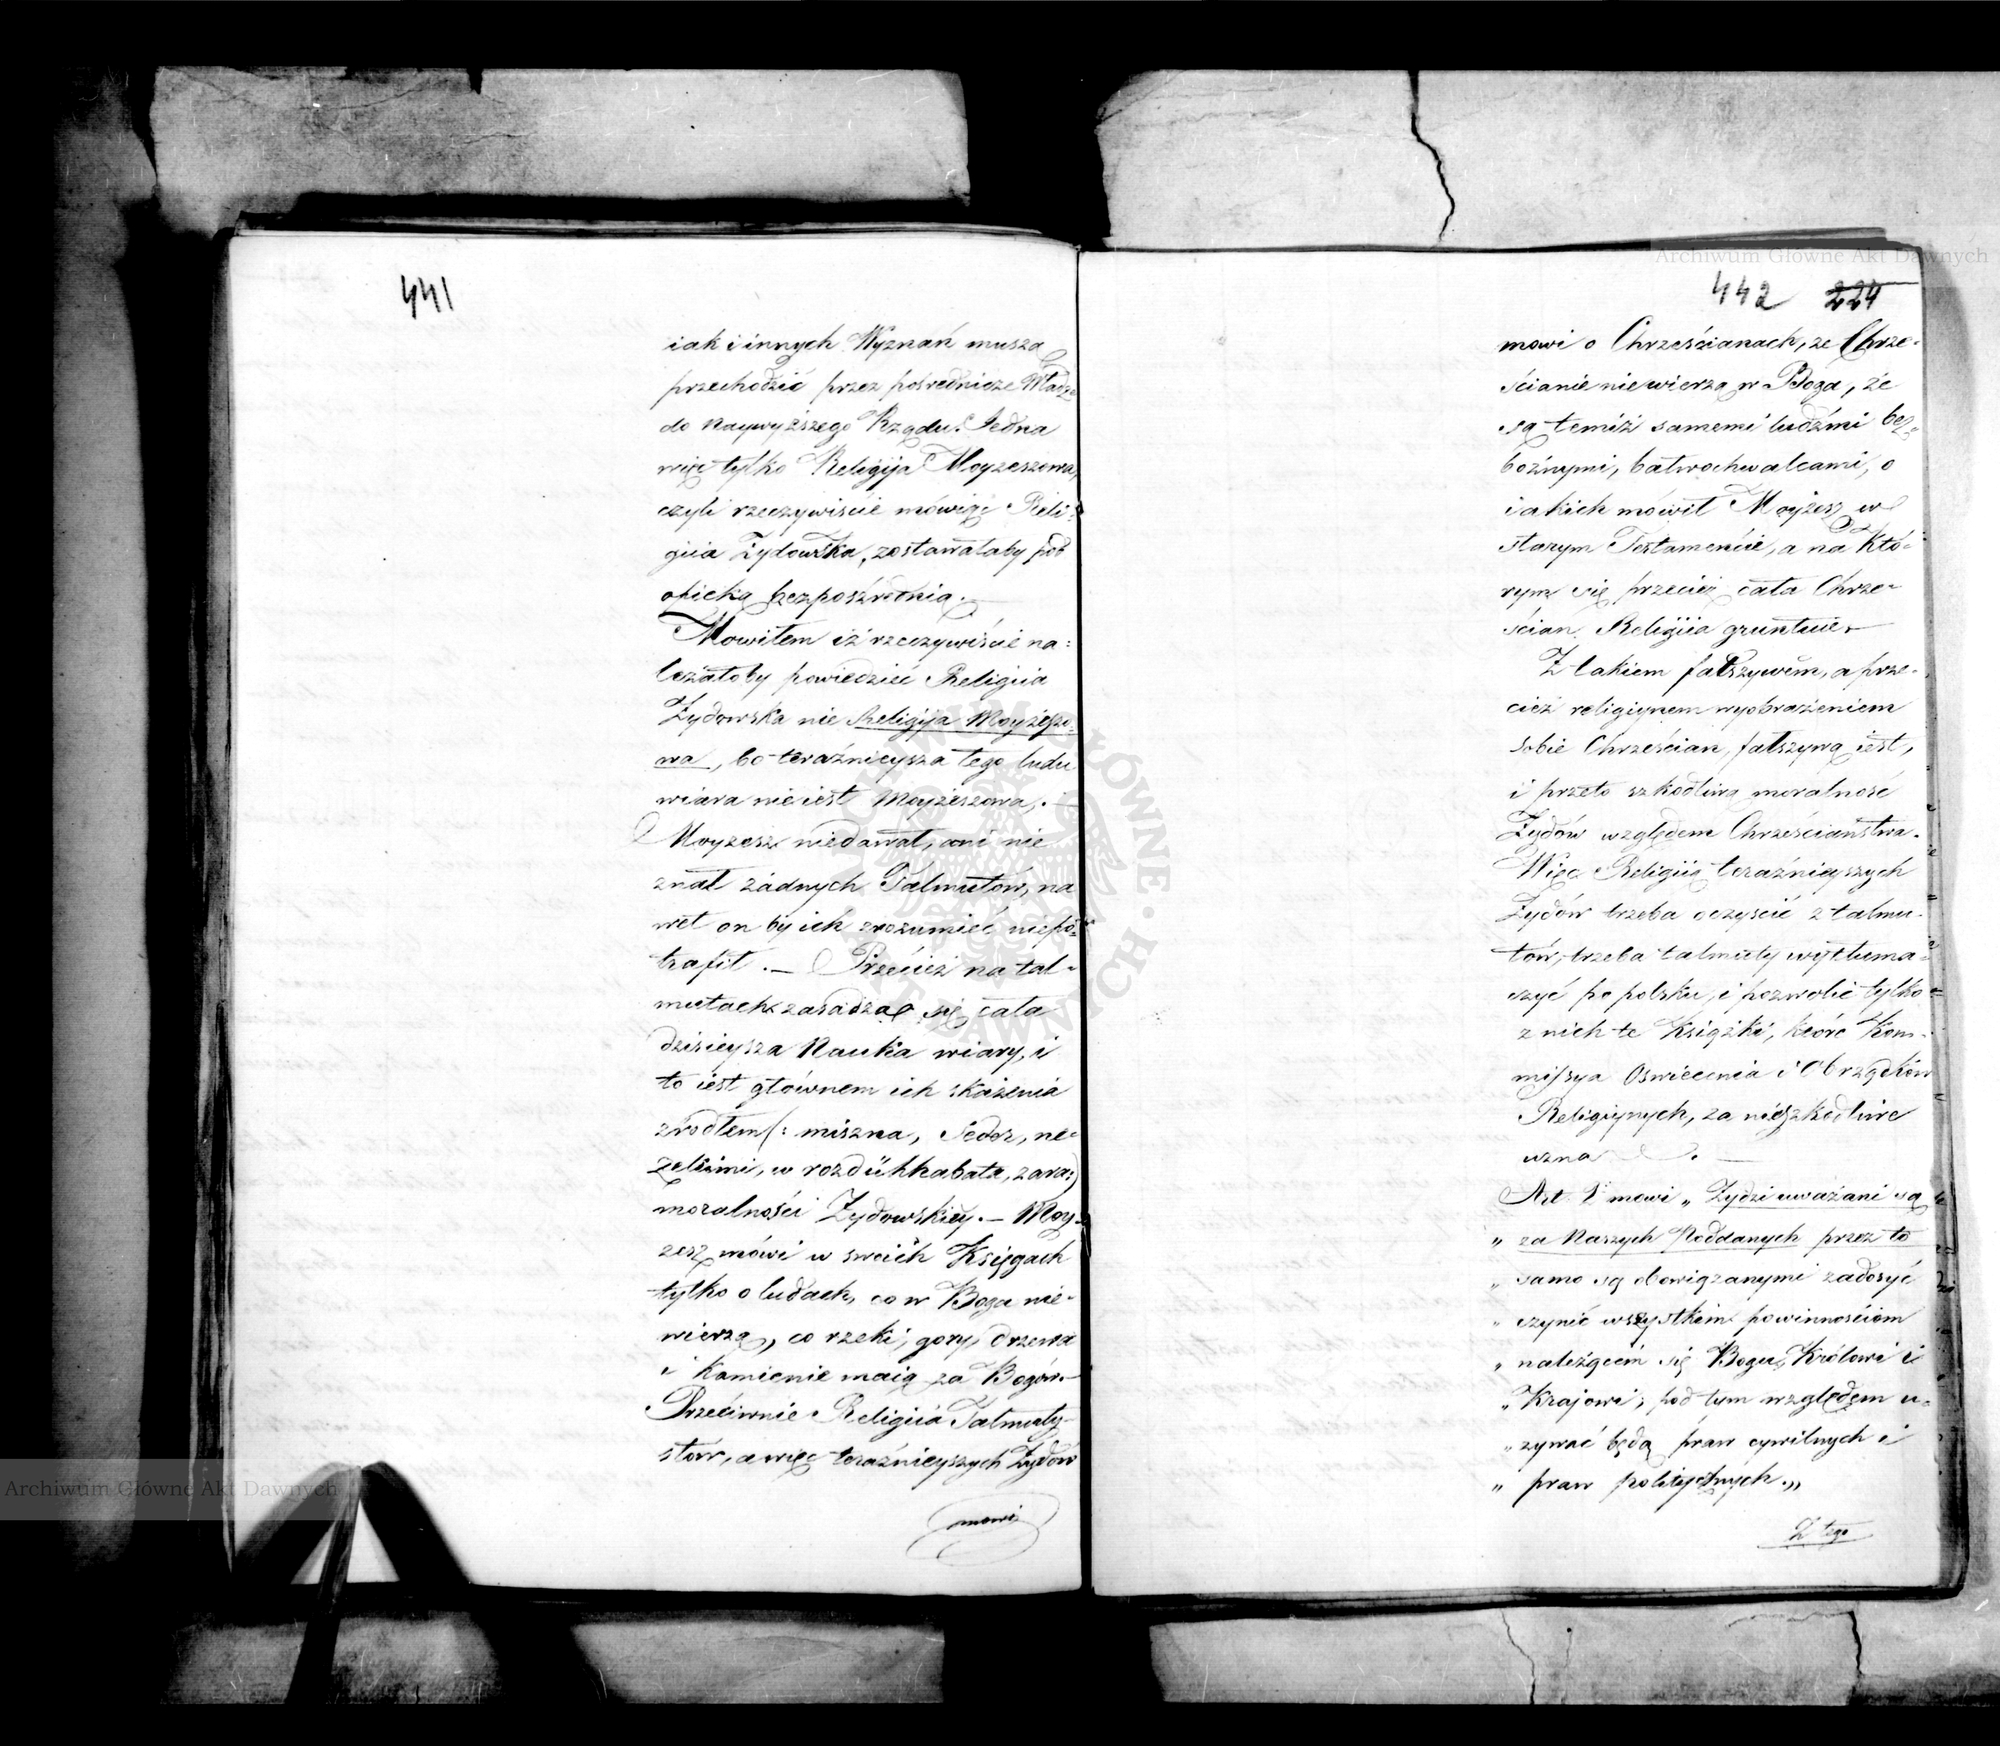 441
iak i innych Wyznań muszą
przechodzić przez pośrednicze Władze
do naywyższego Rządu. Jedna
więc tylko Religija Moyżeszowa,
czyli rzeczywiście mówiąc Reli-
giia Żydowska, zostawałaby pod
opieką bezpośrednią.
Mowiłem iż rzeczywiście na:
leżałoby powiedzieć Religiia
Żydowska nie Religija Moyżeszo-
wa, bo teraźnieysza tego ludu
wiara nie iest Moyżeszowa.
Moyzesz niedawał, ani nie
znał żadnych Talmutów, na
wet on by ich zrozumieć niepo-
trafił. — Przecież na tal-
mutach zasadza się cała
dzisieysza Nauka wiary, i
to iest głównem ich skażenia
źrodłem (: miszna, Seder, ne-
zelsimi, w rozdü hkabata, zara:)
moralności Żydowskiey. — Moy-
zesz mówi w swoich Księgach
tylko o ludach, co w Boga nie-
wierzą, co rzeki, gory, drzewa
i Kamienie maią za Bogów.—
Przeciwnie Religiia Talmuty-
stów, a więc teraźnieyszych Żydów
mowi
Archiwum Główne Akt Dawnych
442 224
mowi o Chrześcianach, że Chrze-
ścianie niewierzą w Boga, że
są temiż samemi ludźmi bez-
bożnymi, bałwochwalcami, o
iakich mówił Moyżesz w
starym Testamencie, a na Któ-
rym się przecież cała Chrze-
ścian Religiia gruntuie.—
Z takiem fałszywem, a prze-
cież religiynem wyobrażeniem
sobie Chrześcian, fałszywą iest,
i przeto szkodliwą moralność
Żydów względem Chrześciaństwa.
Więc Religiią teraźnieyszych
Żydów trzeba oczyścić z talmu-
tów, trzeba talmuty wytłuma-
czyć po polsku, i pozwolić tylko
z nich te Książki, które Kom-
missya Oswiecenia i Obrządków
Religiynych, za nieszkodliwe
uzna.
Art. 1. mowi „ Żydzi uważani są
„ za Naszych Poddanych przez to
„ samo są obowiązanymi zadosyć
„ czynić wszystkim powinnościom
„ należącem się Bogu, Królowi i
„ Krajowi; pod tym względem u-
„ żywać będą praw cywilnych i
„ praw politycznych.„
Z tego
Archiwum Główne Akt Dawnych